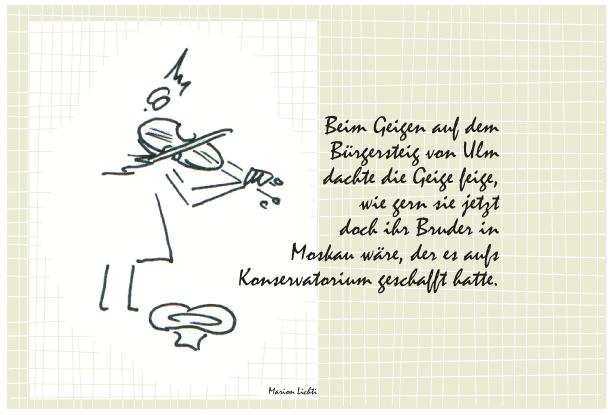 Beim Geigen auf dem
Bürgersteig von Ulm
dachte die Geige feige,
wie gern sie jetzt
doch ihr Bruder in
Moskau wäre, der es aufs
Konservatorium geschafft hatte.
Marion Lichti